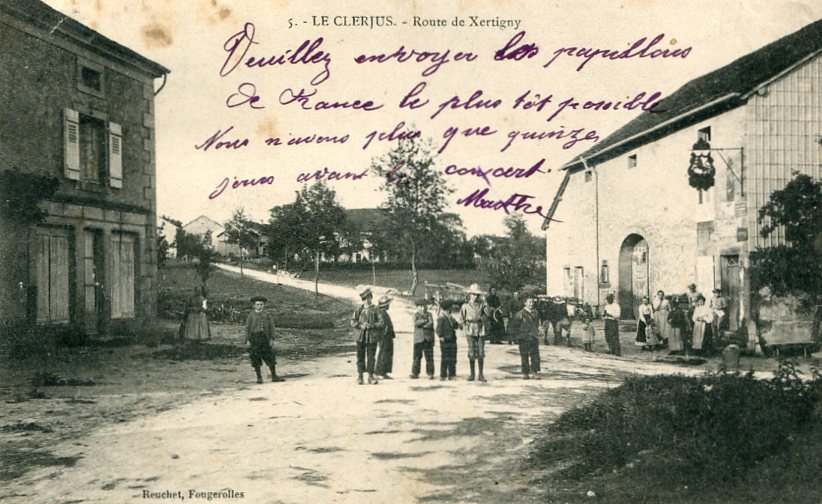 5. - LE CLERJUS. - Route de Xertigny
Veuillez envoyer les papillons
de France le plus tôt possible
Nous n'avons plus que quinze
jours avant le concert.
Marthe
Reuchet, Fougerolles